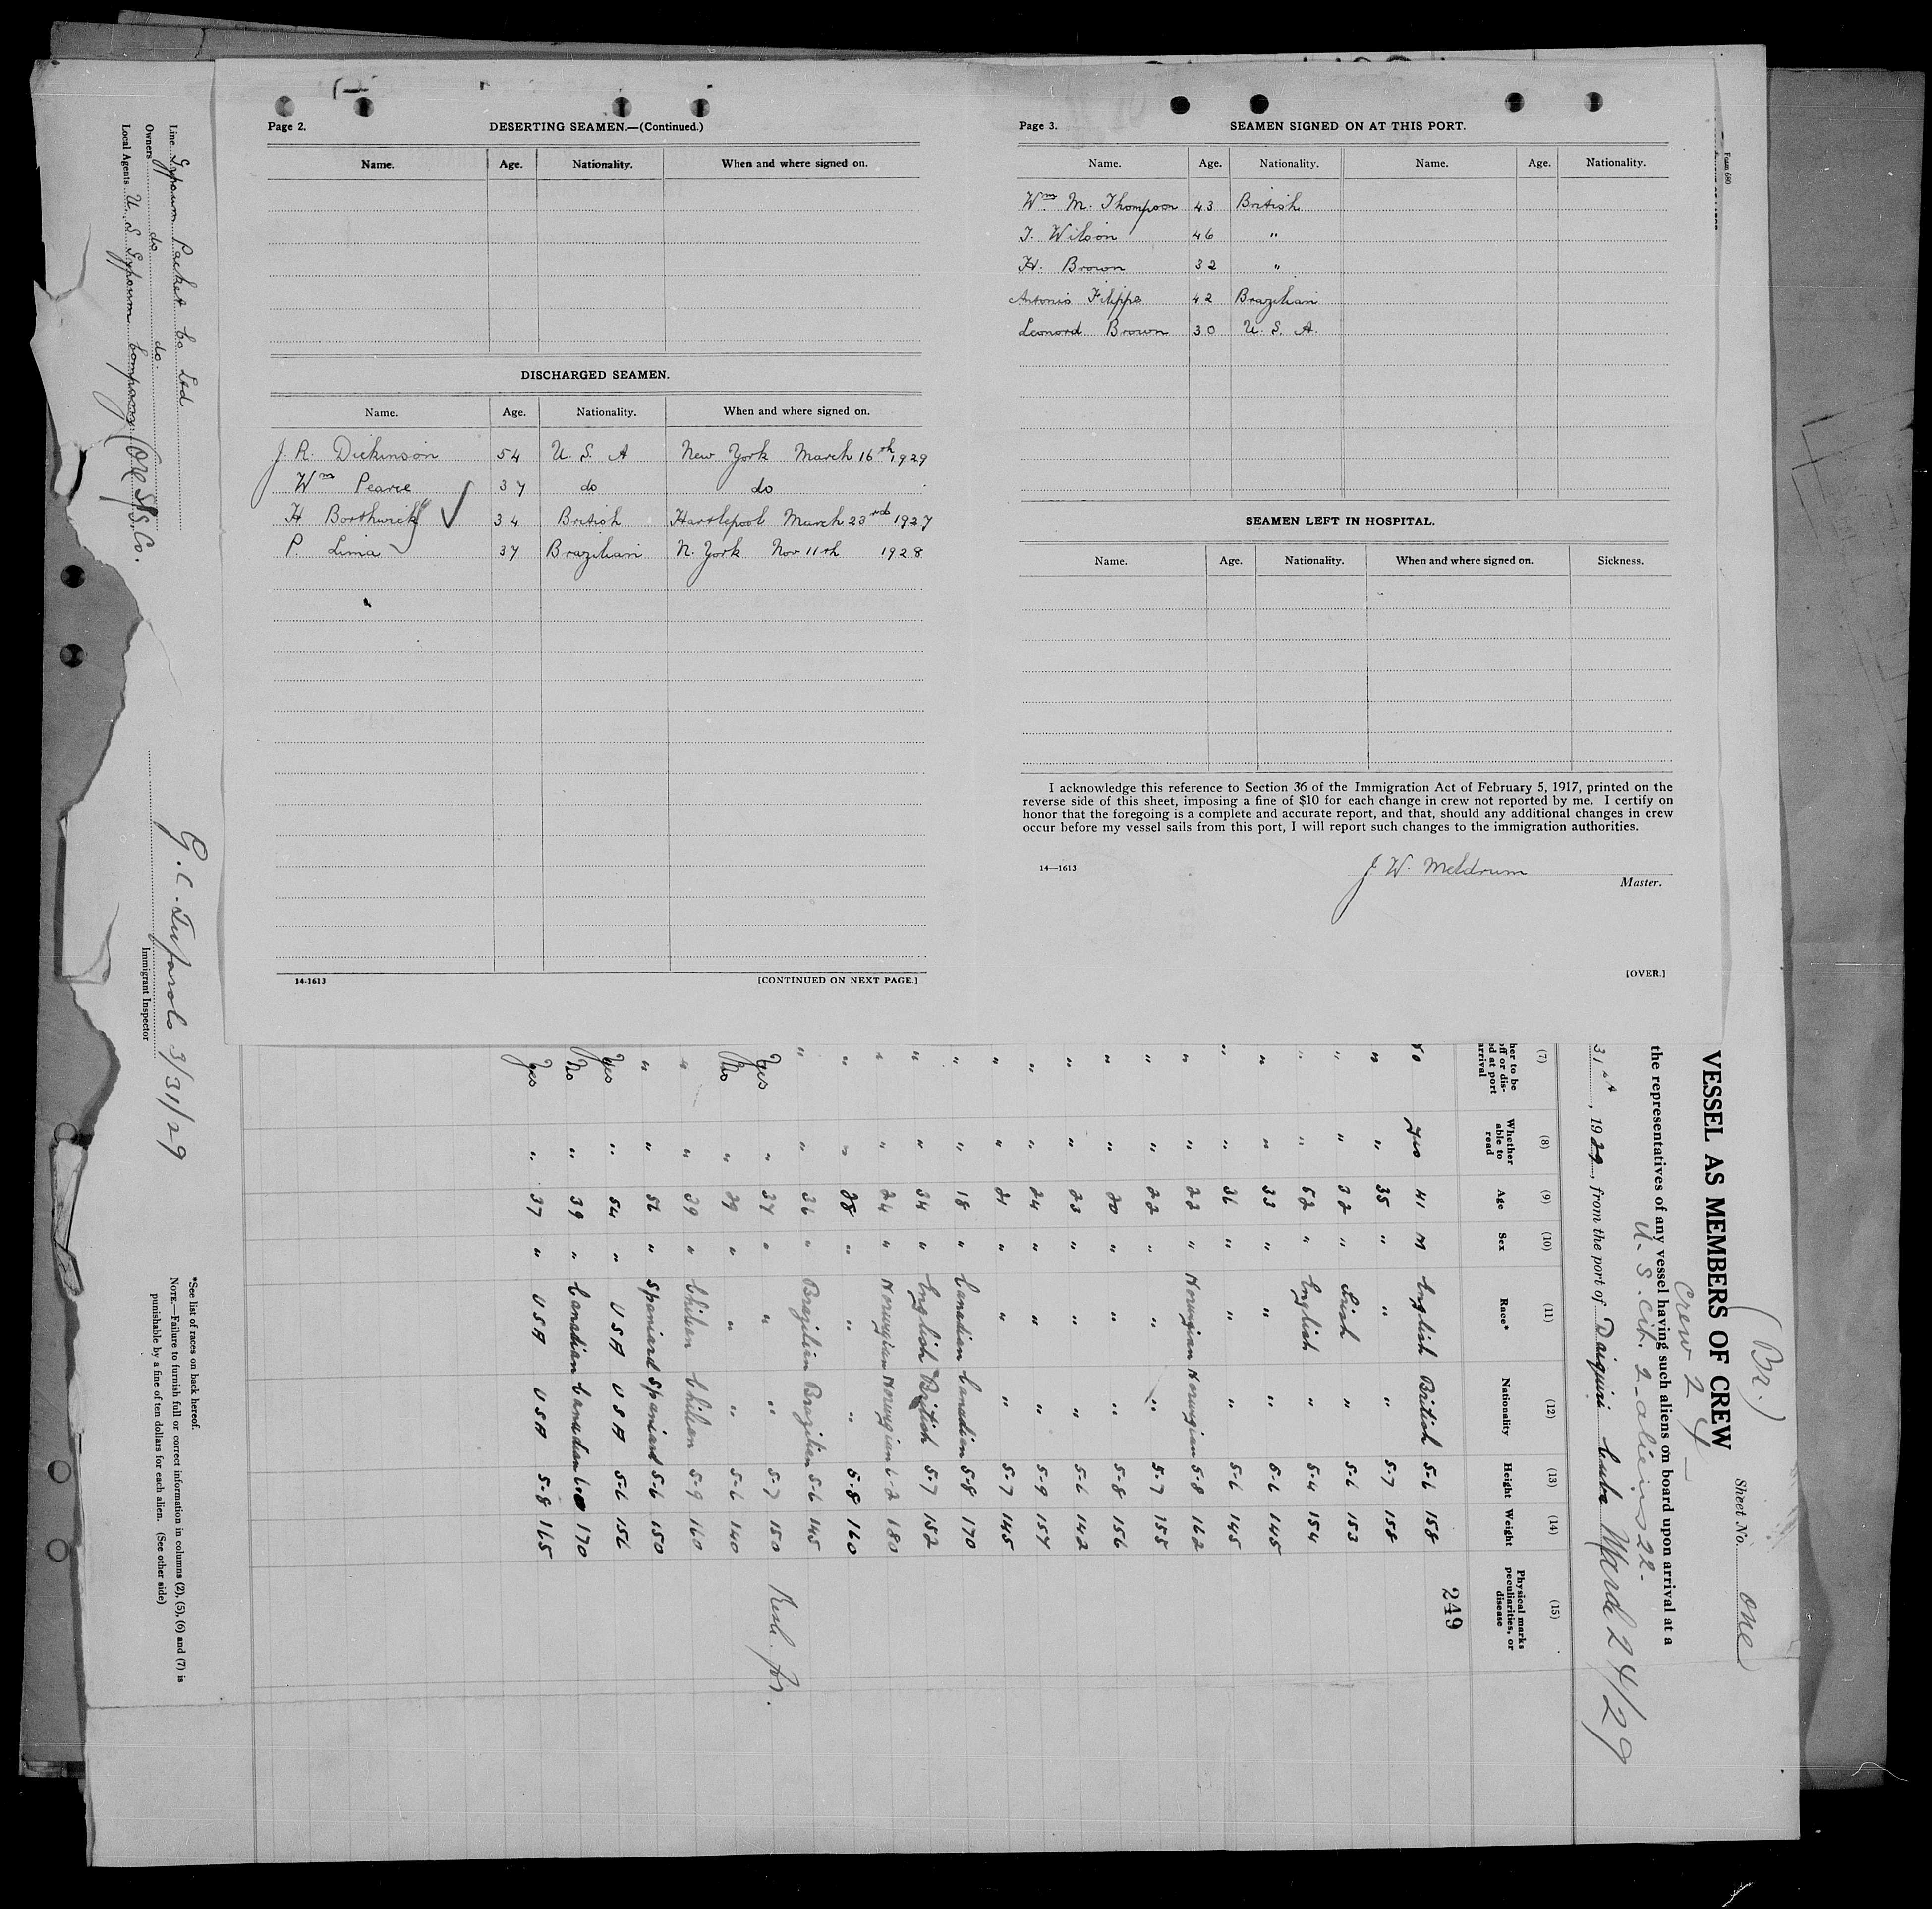 Page 2.
DESERTING SEAMEN.—(Continued.)
Name. Age. Nationality. When and where signed on.
DISCHARGED SEAMEN.
Name. Age. Nationality. When and where signed on.
J. R. Dickinson 54 U. S. A New York March 16th 1929
Wm Pearce 37 do do
H Borthwick 34 British Hartlepool March 23rd 1927
P. Lima 37 Brazilian N. York Nov 11th 1928
14-1613
[CONTINUED ON NEXT PAGE.]
Page 3.
SEAMEN SIGNED ON AT THIS PORT.
Name. Age. Nationality. Name. Age. Nationality.
Wm M. Thompson 43 British
J. Wilson 46 "
H. Brown 32 "
Antonio Filippe 42 Brazilian
Leonard Brown 30 U. S. A.
SEAMEN LEFT IN HOSPITAL.
Name. Age. Nationality. When and where signed on. Sickness.
I acknowledge this reference to Section 36 of the Immigration Act of February 5, 1917, printed on the
reverse side of this sheet, imposing a fine of $10 for each change in crew not reported by me. I certify on
honor that the foregoing is a complete and accurate report, and that, should any additional changes in crew
occur before my vessel sails from this port, I will report such changes to the immigration authorities.
14—1613
J. W. Meldrum
Master.
[OVER.]
Form 680
(Br.)
Sheet No. one
VESSEL AS MEMBERS OF CREW
Crew 24
the representatives of any vessel having such aliens on board upon arrival at a
U. S. Cit. 2 - aliens 22 -
31st, 1929, from the port of Daiquiri Cuba March 24/29
(7) (8) (9) (10) (11) (12) (13) (14) (15)
Whether able to read
Age
Sex
Race*
Nationality
Height
Weight
Physical marks peculiarities, or disease
249
No Yes 41 M English British 5-6 158
" " 35 " " " 5-7 158
" " 32 " Irish " 5-6 153
" " 52 " English " 5-4 154
" " 33 " " " 5-6 145
" " 36 " " " 5-6 145
" " 22 " Norwegian Norwegian 5-8 162
" " 22 " " " 5-7 155
" " 20 " " " 5-8 156
" " 23 " " " 5-6 142
" " 24 " " " 5-9 157
" " 21 " " " 5-7 145
" " 18 " Canadian Canadian 5-8 170
" " 34 " English British 5-7 152
" " 24 " Norwegian Norwegian 6-2 180
" " 28 " " " 5-8 160
" " 36 " Brazilian Brazilian 5-6 145
Yes " 37 " " " 5-7 150
No " 29 " " " 5-6 140
" " 39 " Chilien Chilien 5-9 160
" " 56 " Spaniard Spaniard 5-6 150
Yes " 54 " USA USA 5-6 156
No " 39 " Canadian Canadian 6-0 170
Yes " 37 " USA USA 5-8 165
*See list of races on back hereof.
NOTE.—Failure to furnish full or correct information in columns (2), (5), (6) and (7) is
punishable by a fine of ten dollars for each alien. (See other side)
Line Gypsum Packet Co Ltd
Owners do. do.
Local Agents U. S. Gypsum Company
3/31/29
Immigrant Inspector